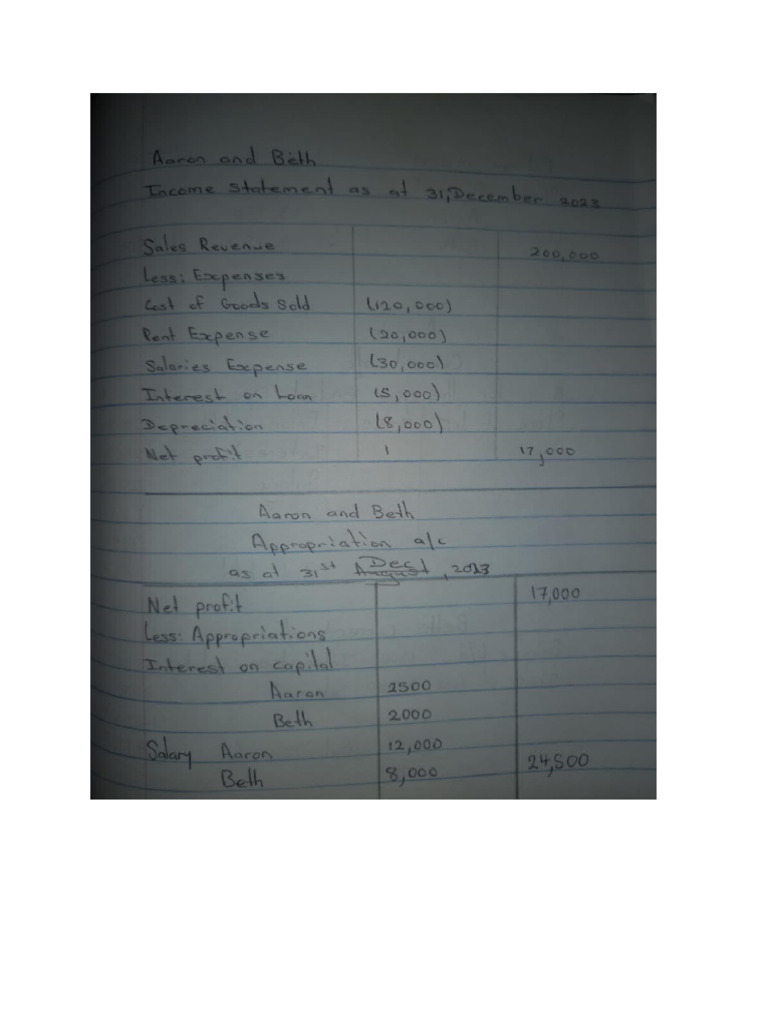 Aaron and Beth
Income statement as at 31, December 2023
Sales Revenue 200,000
Less: Expenses
Cost of Goods Sold (120,000)
Rent Expense (20,000)
Salaries Expense (30,000)
Interest on Loan (5,000)
Depreciation (8,000)
Net profit 17,000
Aaron and Beth
Appropriation a/c
as at 31st August Dec, 2023
Net profit 17,000
Less: Appropriations
Interest on capital
Aaron 2500
Beth 2000
Salary Aaron 12,000
Beth 8,000 24,500